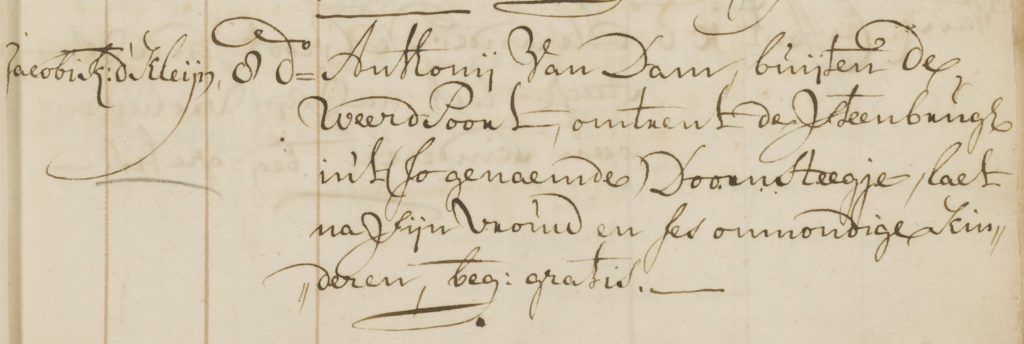 Jacobi K: d' Kleijn, 8 do= Anthonij Van Dam, buijten de
Weerd Poort, omtrent de Steenbrugh
in't (so genaemde) Doornsteegje, laet
na sijn vrouw en ses onmondige kin„
„deren, beg: gratis.